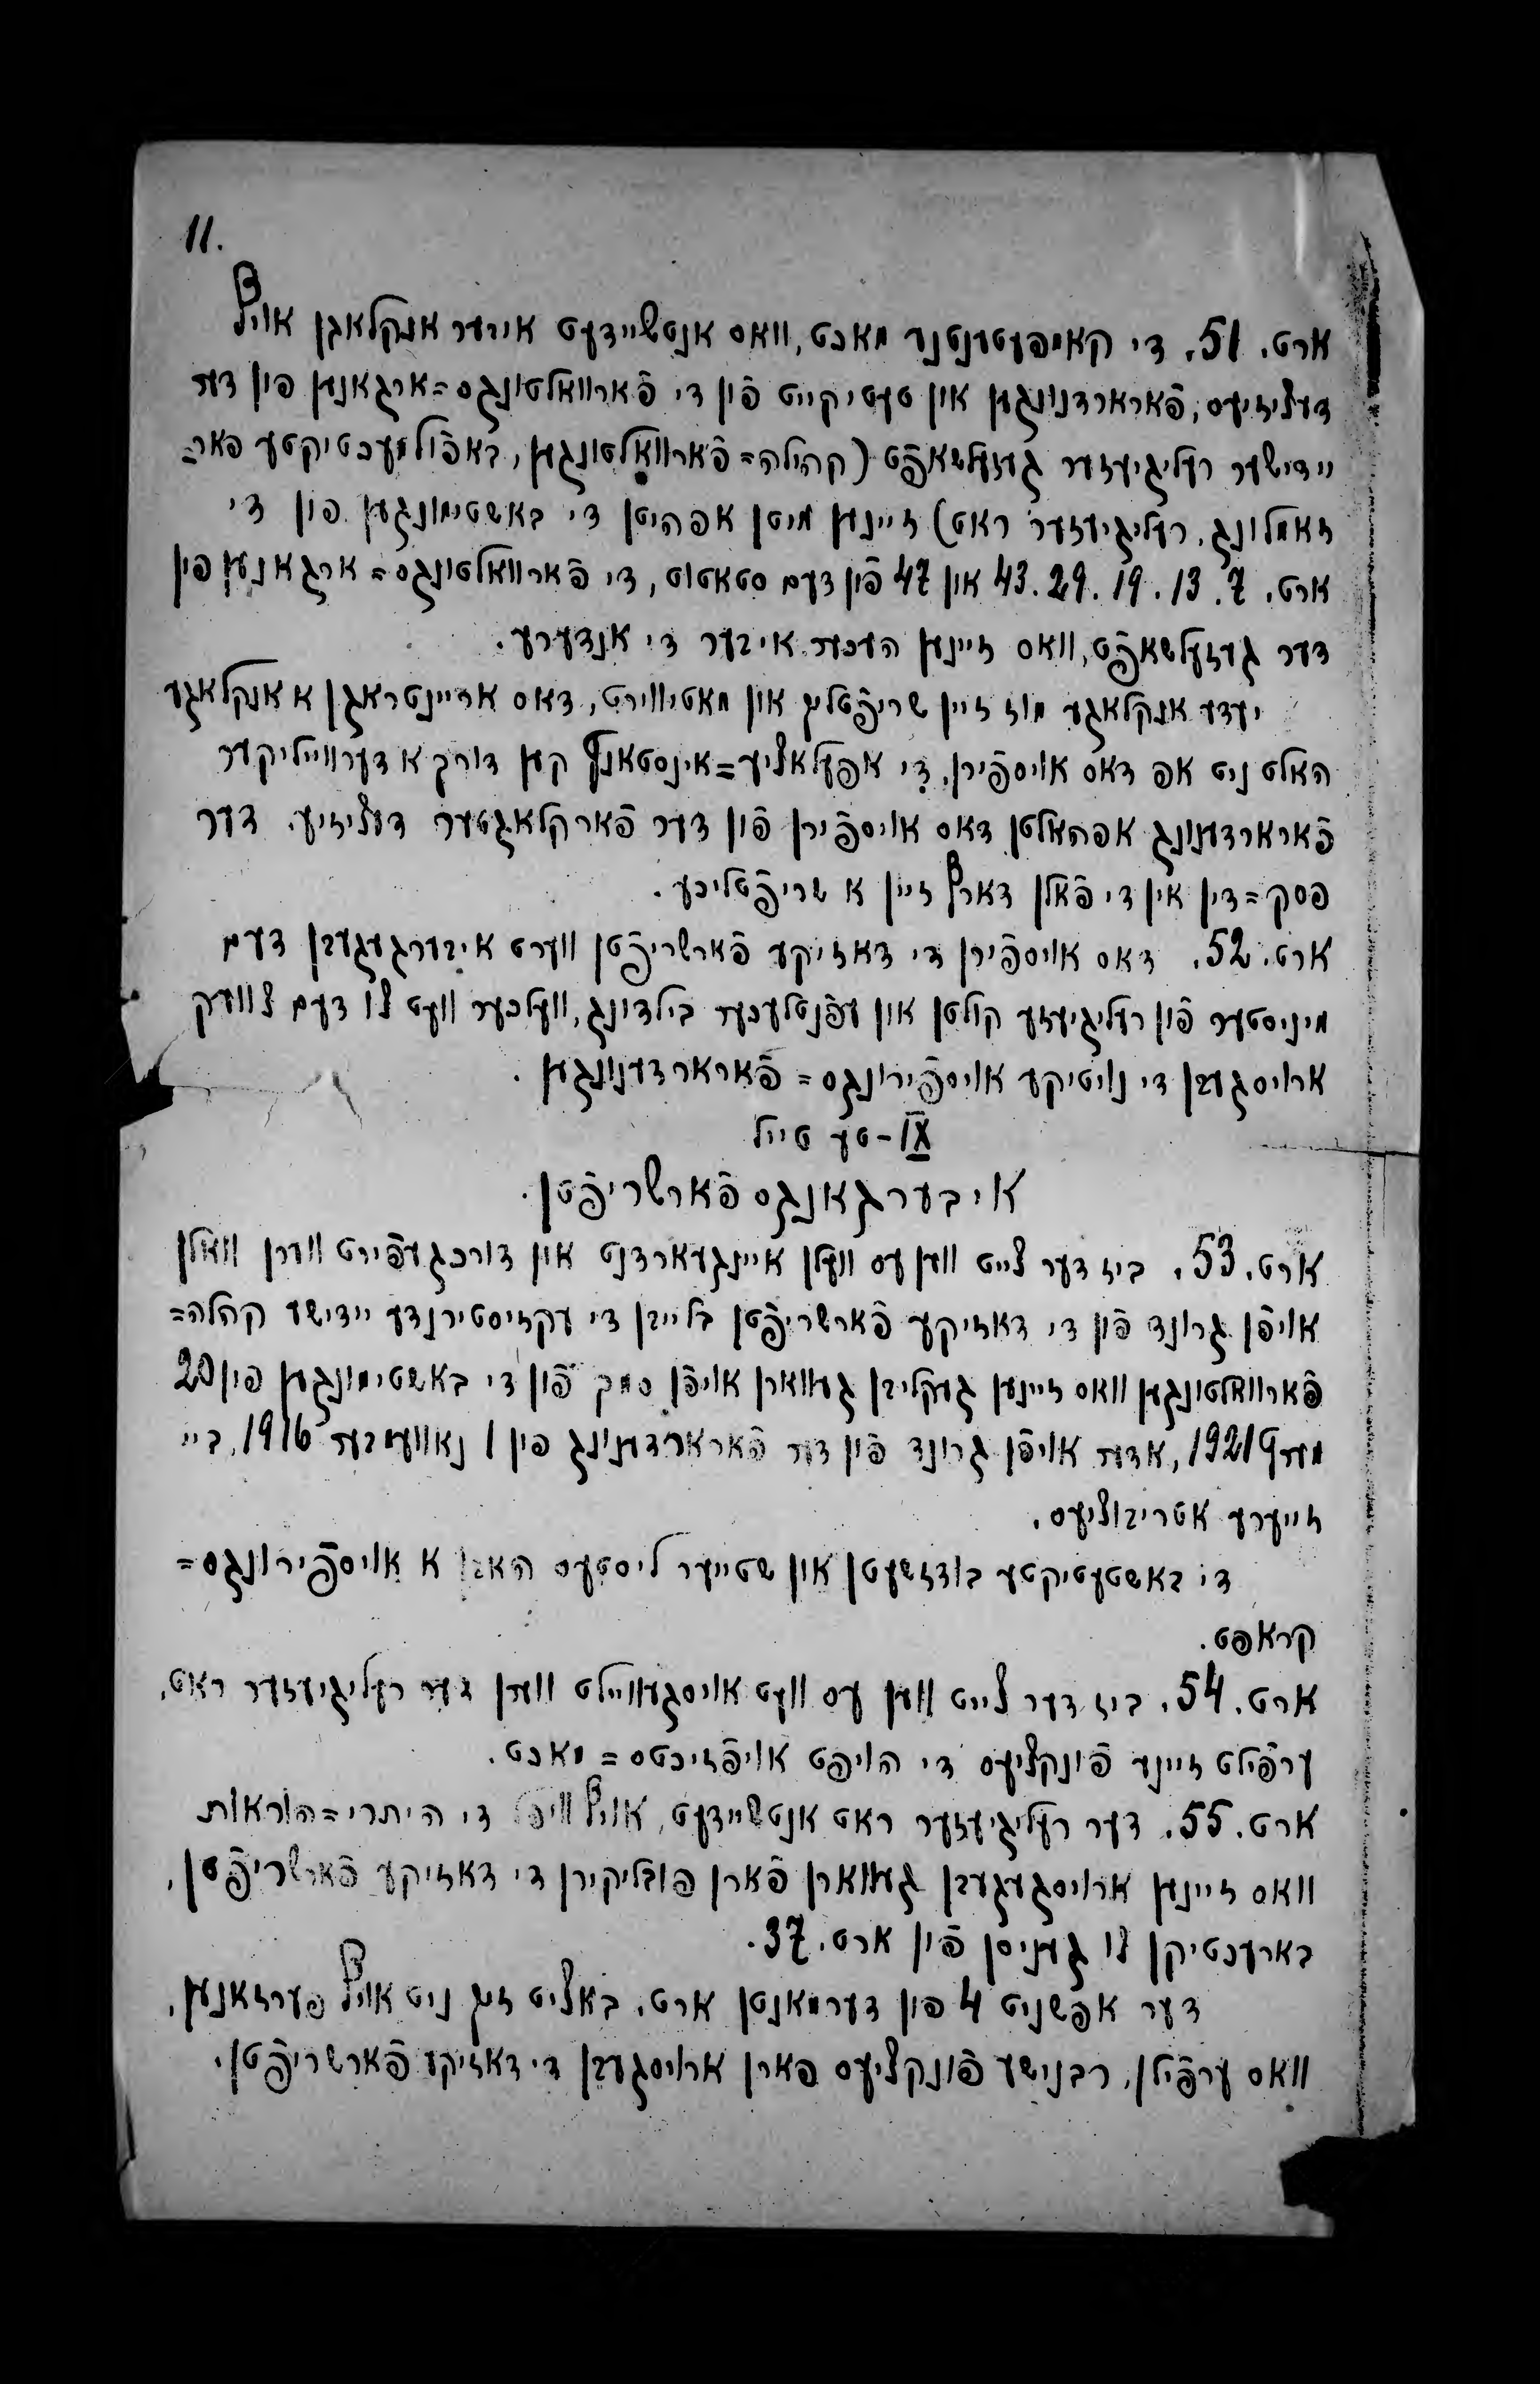 11.
ארט. 51. די קאמפעטענטע מאכט, וואס אנטשיידעט איבער אנקלאגן אויף
דעציזיעס, פֿאראָרדנונגען און טעטיקייט פֿון די פֿארוואלטונגס=ארגאנען פון דער
יידישער רעליגיעזער געזעלשאפֿט (קהילה=פֿארוואלטונגען, באפֿולמעכטיקטע פאר=
זאמלונג, רעליגיעזער ראט) זיינען מיטן אפהיטן די באשטימונגען פון די
ארט. 7. 13. 19. 29. 43 און 47 פֿון דעם סטאטוט, די פֿארוואלטונגס=ארגאנען פון
דער געזעלשאפֿט, וואס זיינען העכער איבער די אנדערע.
יעדע אנקלאגע מוז זיין שריפֿטליך און מאטיווירט, דאס אריינטראגן א אנקלאגע
האלט ניט אפ דאס אויספֿירן. די אפעלאציע=אינסטאנץ קען דורך א דערווייליקער
פֿאראָרדענונג אפהאלטן דאס אויספֿירן פֿון דער פֿארקלאגטער דעציזיע. דער
פסק=דין אין די פֿאלן דארף זיין א שריפֿטליכע.
ארט. 52. דאס אויספֿירן די דאזיקע פֿארשריפֿטן ווערט איבערגעגעבן דעם
מיניסטער פֿון רעליגיעזע קולטן און עפֿנטלעכער בילדונג, וועלכער וועט צו דעם צוועק
ארויסגעבן די נויטיקע אויספֿירונגס=פֿאראָרדענונגען.
IX-טער טייל
איבערגאנגס פֿארשריפֿטן.
ארט. 53. ביז דער צייט ווען עס וועלן איינגעארדנט און דורכגעפֿירט ווערן וואלן
אויפֿן גרונד פֿון די דאזיקע פֿארשריפֿטן בלייבן די עקזיסטירנדע יידישע קהלה=
פֿארוואלטונגען וואס זיינען געקליבן געווארן אויפֿן סמך פֿון די באשטימונגען פון 20
מערץ 1921, אדער אויפֿן גרונד פֿון דער פֿאראָרדענונג פון 1 נאוועמבער 1916, ביי
זייערע אטריבוציעס.
די באשטעטיקטע בודזשעטן און שטייער ליסטעס האבן א אויספֿירונגס=
קראפט.
ארט. 54. ביז דער צייט ווען עס וועט אויסגעוויילט ווערן דער רעליגיעזער ראט,
ערפֿילט זיינע פֿונקציעס די הויפט אויפֿזיכטס=מאכט.
ארט. 55. דער רעליגיעזער ראט אנטשיידעט, אויף וויפל די היתרי=הוראות
וואס זיינען ארויסגעגעבן געווארן פֿארן פובליקירן די דאזיקע פֿארשריפֿטן,
בארעכטיקן צו געניסן פֿון ארט. 37.
דער אפשניט 4 פון דערמאנטן ארט. באציט זיך ניט אויף פערזאנען,
וואס ערפֿילן, רבנישע פֿונקציעס פארן ארויסגעבן די דאזיקע פֿארשריפֿטן.